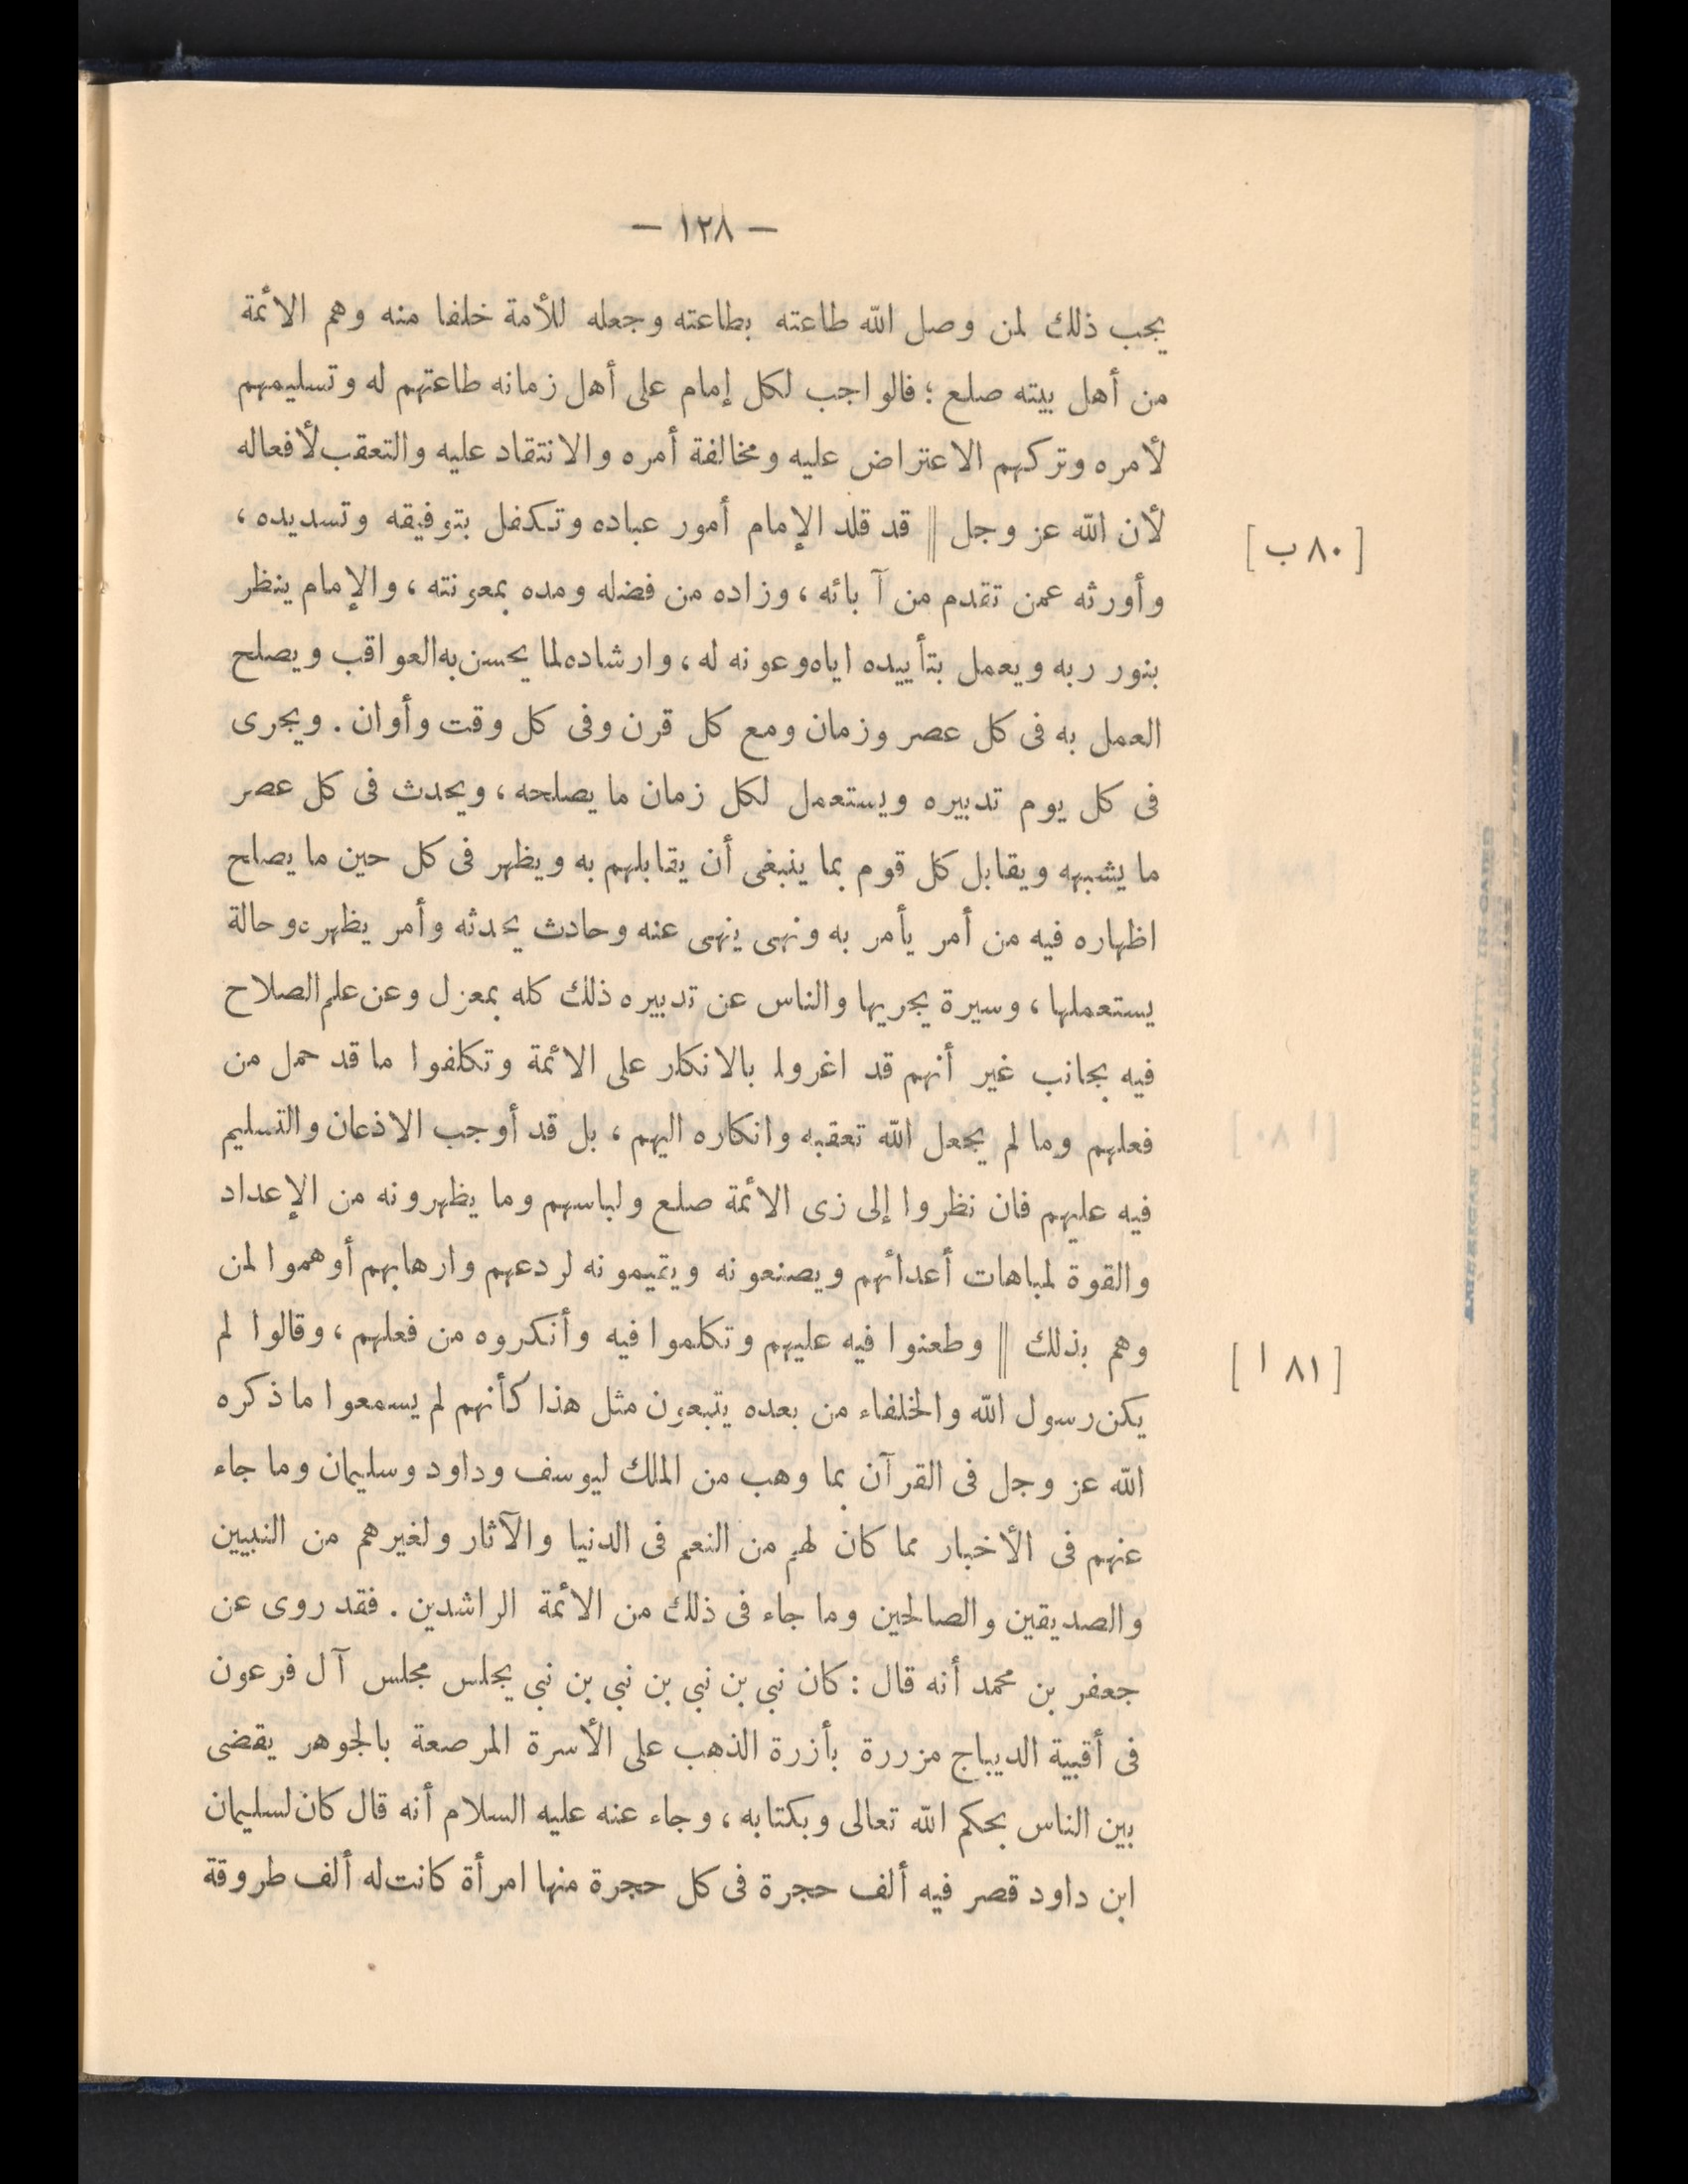 — ١٢٨ —
يجب ذلك لمن وصل الله طاعته بطاعته وجعله للأمة خلفا منه وهم الائمة
من أهل بيته صلع ؛ فالواجب لكل إمام على أهل زمانه طاعتهم له وتسليمهم
لأمره وتركهم الاعتراض عليه ومخالفة أمره والانتقاد عليه والتعقب لأفعاله
لأن الله عز وجل || قد قلد الإمام أمور عباده وتكفل بتوفيقه وتسديده ،
[ ٨٠ ب ]
وأورثه عمن تقدم من آبائه ، وزاده من فضله ومده بمعونته ، والإمام ينظر
بنور ربه ويعمل بتأييده اياه وعونه له ، وارشاده لما يحسن به العواقب ويصلح
العمل به فى كل عصر وزمان ومع كل قرن وفى كل وقت وأوان . ويجرى
فى كل يوم تدبيره ويستعمل لكل زمان ما يصلحه ، ويحدث فى كل عصر
ما يشبهه ويقابل كل قوم بما ينبغى أن يقابلهم به ويظهر فى كل حين ما يصلح
اظهاره فيه من أمر يأمر به ونهى ينهى عنه وحادث يحدثه وأمر يظهره وحالة
يستعملها ، وسيرة يجريها والناس عن تدبيره ذلك كله بمعزل وعن علم الصلاح
فيه بجانب غير أنهم قد اغروا بالانكار على الائمة وتكلفوا ما قد حمل من
فعلهم وما لم يجعل الله تعقبه وانكاره اليهم ، بل قد أوجب الاذعان والتسليم
فيه عليهم فان نظروا إلى زى الائمة صلع ولباسهم وما يظهرونه من الإعداد
والقوة لمباهات أعدائهم ويصنعونه ويقيمونه لردعهم وارهابهم أوهموا لمن
وهم بذلك || وطعنوا فيه عليهم وتكلموا فيه وأنكروه من فعلهم ، وقالوا لم
[ ٨١ ا ]
يكن رسول الله والخلفاء من بعده يتبعون مثل هذا كأنهم لم يسمعوا ما ذكره
الله عز وجل فى القرآن بما وهب من الملك ليوسف وداود وسليمان وما جاء
عنهم فى الأخبار مما كان لهم من النعم فى الدنيا والآثار ولغيرهم من النبيين
والصديقين والصالحين وما جاء فى ذلك من الائمة الراشدين . فقد روى عن
جعفر بن محمد أنه قال : كان نبى بن نبى بن نبى بن نبى يجلس مجلس آل فرعون
فى أقبية الديباج مزررة بأزرة الذهب على الأسرة المرصعة بالجوهر يقضى
بين الناس بحكم الله تعالى وبكتابه ، وجاء عنه عليه السلام أنه قال كان لسليمان
ابن داود قصر فيه ألف حجرة فى كل حجرة منها امرأة كانت له ألف طروقة